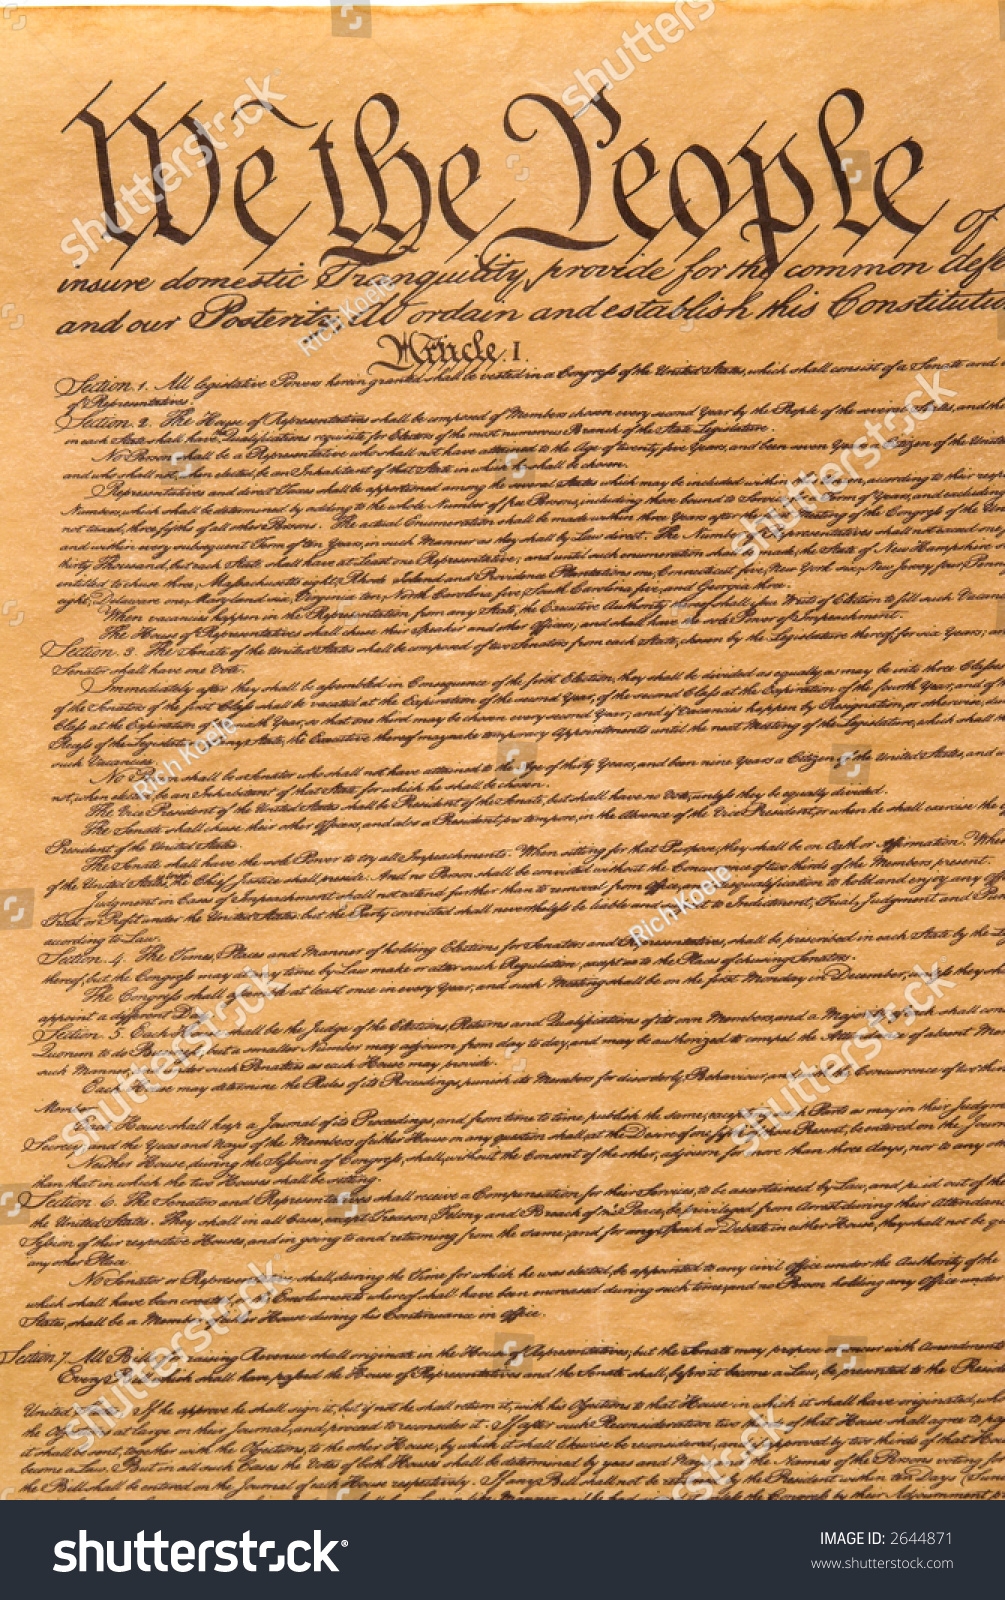 We the People of
insure domestic Tranquility, provide for the common defe
and our Posterity, do ordain and establish this Constitutio
Article. I.
Section. 1. All legislative Powers herein granted shall be vested in a Congress of the United States, which shall consist of a Senate and
of Representatives.
Section. 2. The House of Representatives shall be composed of Members chosen every second Year by the People of the several States, and the
in each State shall have the Qualifications requisite for Electors of the most numerous Branch of the State Legislature.
No Person shall be a Representative who shall not have attained to the Age of twenty five Years, and been seven Years a Citizen of the Unite
and who shall not, when elected, be an Inhabitant of that State in which he shall be chosen.
Representatives and direct Taxes shall be apportioned among the several States which may be included within this Union, according to their resp
Numbers, which shall be determined by adding to the whole Number of free Persons, including those bound to Service for a Term of Years, and excluding
not taxed, three fifths of all other Persons. The actual Enumeration shall be made within three Years after the first Meeting of the Congress of the Un
and within every subsequent Term of ten Years, in such Manner as they shall by Law direct. The Number of Representatives shall not exceed one
thirty Thousand, but each State shall have at Least one Representative; and until such enumeration shall be made, the State of New Hampshire
entitled to chuse three, Massachusetts eight, Rhode Island and Providence Plantations one, Connecticut five, New York six, New Jersey four, Penn
eight, Delaware one, Maryland six, Virginia ten, North Carolina five, South Carolina five, and Georgia three.
When vacancies happen in the Representation from any State, the Executive Authority thereof shall issue Writs of Election to fill such Vacanc
The House of Representatives shall chuse their Speaker and other Officers; and shall have the sole Power of Impeachment.
Section. 3. The Senate of the United States shall be composed of two Senators from each State, chosen by the Legislature thereof, for six Years; an
Senator shall have one Vote.
Immediately after they shall be assembled in Consequence of the first Election, they shall be divided as equally as may be into three Classes
of the Senators of the first Class shall be vacated at the Expiration of the second Year, of the second Class at the Expiration of the fourth Year, and of
Class at the Expiration of the sixth Year, so that one third may be chosen every second Year; and if Vacancies happen by Resignation, or otherwise, du
Recess of the Legislature of any State, the Executive thereof may make temporary Appointments until the next Meeting of the Legislature, which shall
such Vacancies.
No Person shall be a Senator who shall not have attained to the Age of thirty Years, and been nine Years a Citizen of the United States, and
not, when elected, be an Inhabitant of that State for which he shall be chosen.
The Vice President of the United States shall be President of the Senate, but shall have no Vote, unless they be equally divided.
The Senate shall chuse their other Officers, and also a President pro tempore, in the Absence of the Vice President, or when he shall exercise the
President of the United States.
The Senate shall have the sole Power to try all Impeachments. When sitting for that Purpose, they shall be on Oath or Affirmation. When
of the United States, the Chief Justice shall preside: And no Person shall be convicted without the Concurrence of two thirds of the Members present.
Judgment in Cases of Impeachment shall not extend further than to removal from Office, and disqualification to hold and enjoy any Off
Trust or Profit under the United States: but the Party convicted shall nevertheless be liable and subject to Indictment, Trial, Judgment and Pun
according to Law.
Section. 4. The Times, Places and Manner of holding Elections for Senators and Representatives, shall be prescribed in each State by the Le
thereof; but the Congress may at any time by Law make or alter such Regulations, except as to the Places of chusing Senators.
The Congress shall assemble at least once in every Year, and such Meeting shall be on the first Monday in December, unless they sha
appoint a different Day.
Section. 5. Each House shall be the Judge of the Elections, Returns and Qualifications of its own Members, and a Majority of each shall con
Quorum to do Business; but a smaller Number may adjourn from day to day, and may be authorized to compel the Attendance of absent Mem
such Manner, and under such Penalties as each House may provide.
Each House may determine the Rules of its Proceedings, punish its Members for disorderly Behaviour, and, with the Concurrence of two thir
Member.
Each House shall keep a Journal of its Proceedings, and from time to time publish the same, excepting such Parts as may in their Judgm
Secrecy; and the Yeas and Nays of the Members of either House on any question shall, at the Desire of one fifth of those Present, be entered on the Jour
Neither House, during the Session of Congress, shall, without the Consent of the other, adjourn for more than three days, nor to any oth
than that in which the two Houses shall be sitting.
Section. 6. The Senators and Representatives shall receive a Compensation for their Services, to be ascertained by Law, and paid out of the
the United States. They shall in all Cases, except Treason, Felony and Breach of the Peace, be privileged from Arrest during their Attendan
Session of their respective Houses, and in going to and returning from the same; and for any Speech or Debate in either House, they shall not be q
any other Place.
No Senator or Representative shall, during the Time for which he was elected, be appointed to any civil Office under the Authority of the
which shall have been created, or the Emoluments whereof shall have been encreased during such time; and no Person holding any Office under
States, shall be a Member of either House during his Continuance in Office.
Section. 7. All Bills for raising Revenue shall originate in the House of Representatives; but the Senate may propose or concur with Amendments
Every Bill which shall have passed the House of Representatives and the Senate, shall, before it become a Law, be presented to the Presid
United States; If he approve he shall sign it, but if not he shall return it, with his Objections to that House in which it shall have originated,
the Objections at large on their Journal, and proceed to reconsider it. If after such Reconsideration two thirds of that House shall agree to pa
it shall be sent, together with the Objections, to the other House, by which it shall likewise be reconsidered, and if approved by two thirds of that Hou
become a Law. But in all such Cases the Votes of both Houses shall be determined by yeas and Nays, and the Names of the Persons voting for
the Bill shall be entered on the Journal of each House respectively. If any Bill shall not be returned by the President within ten Days (Sunda
shutterstock
Rich Koele
shutterstock
IMAGE ID: 2644871
www.shutterstock.com